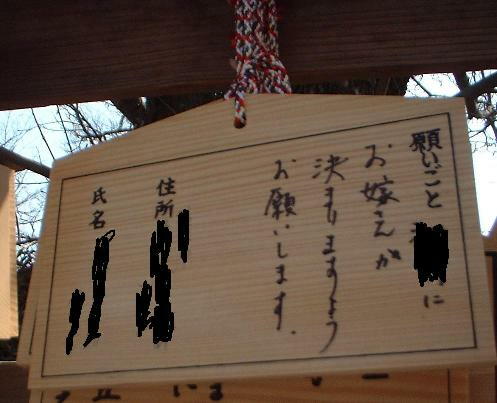 願いごと に
お嫁さんが
決まりますよう
お願いします.
住所
氏名